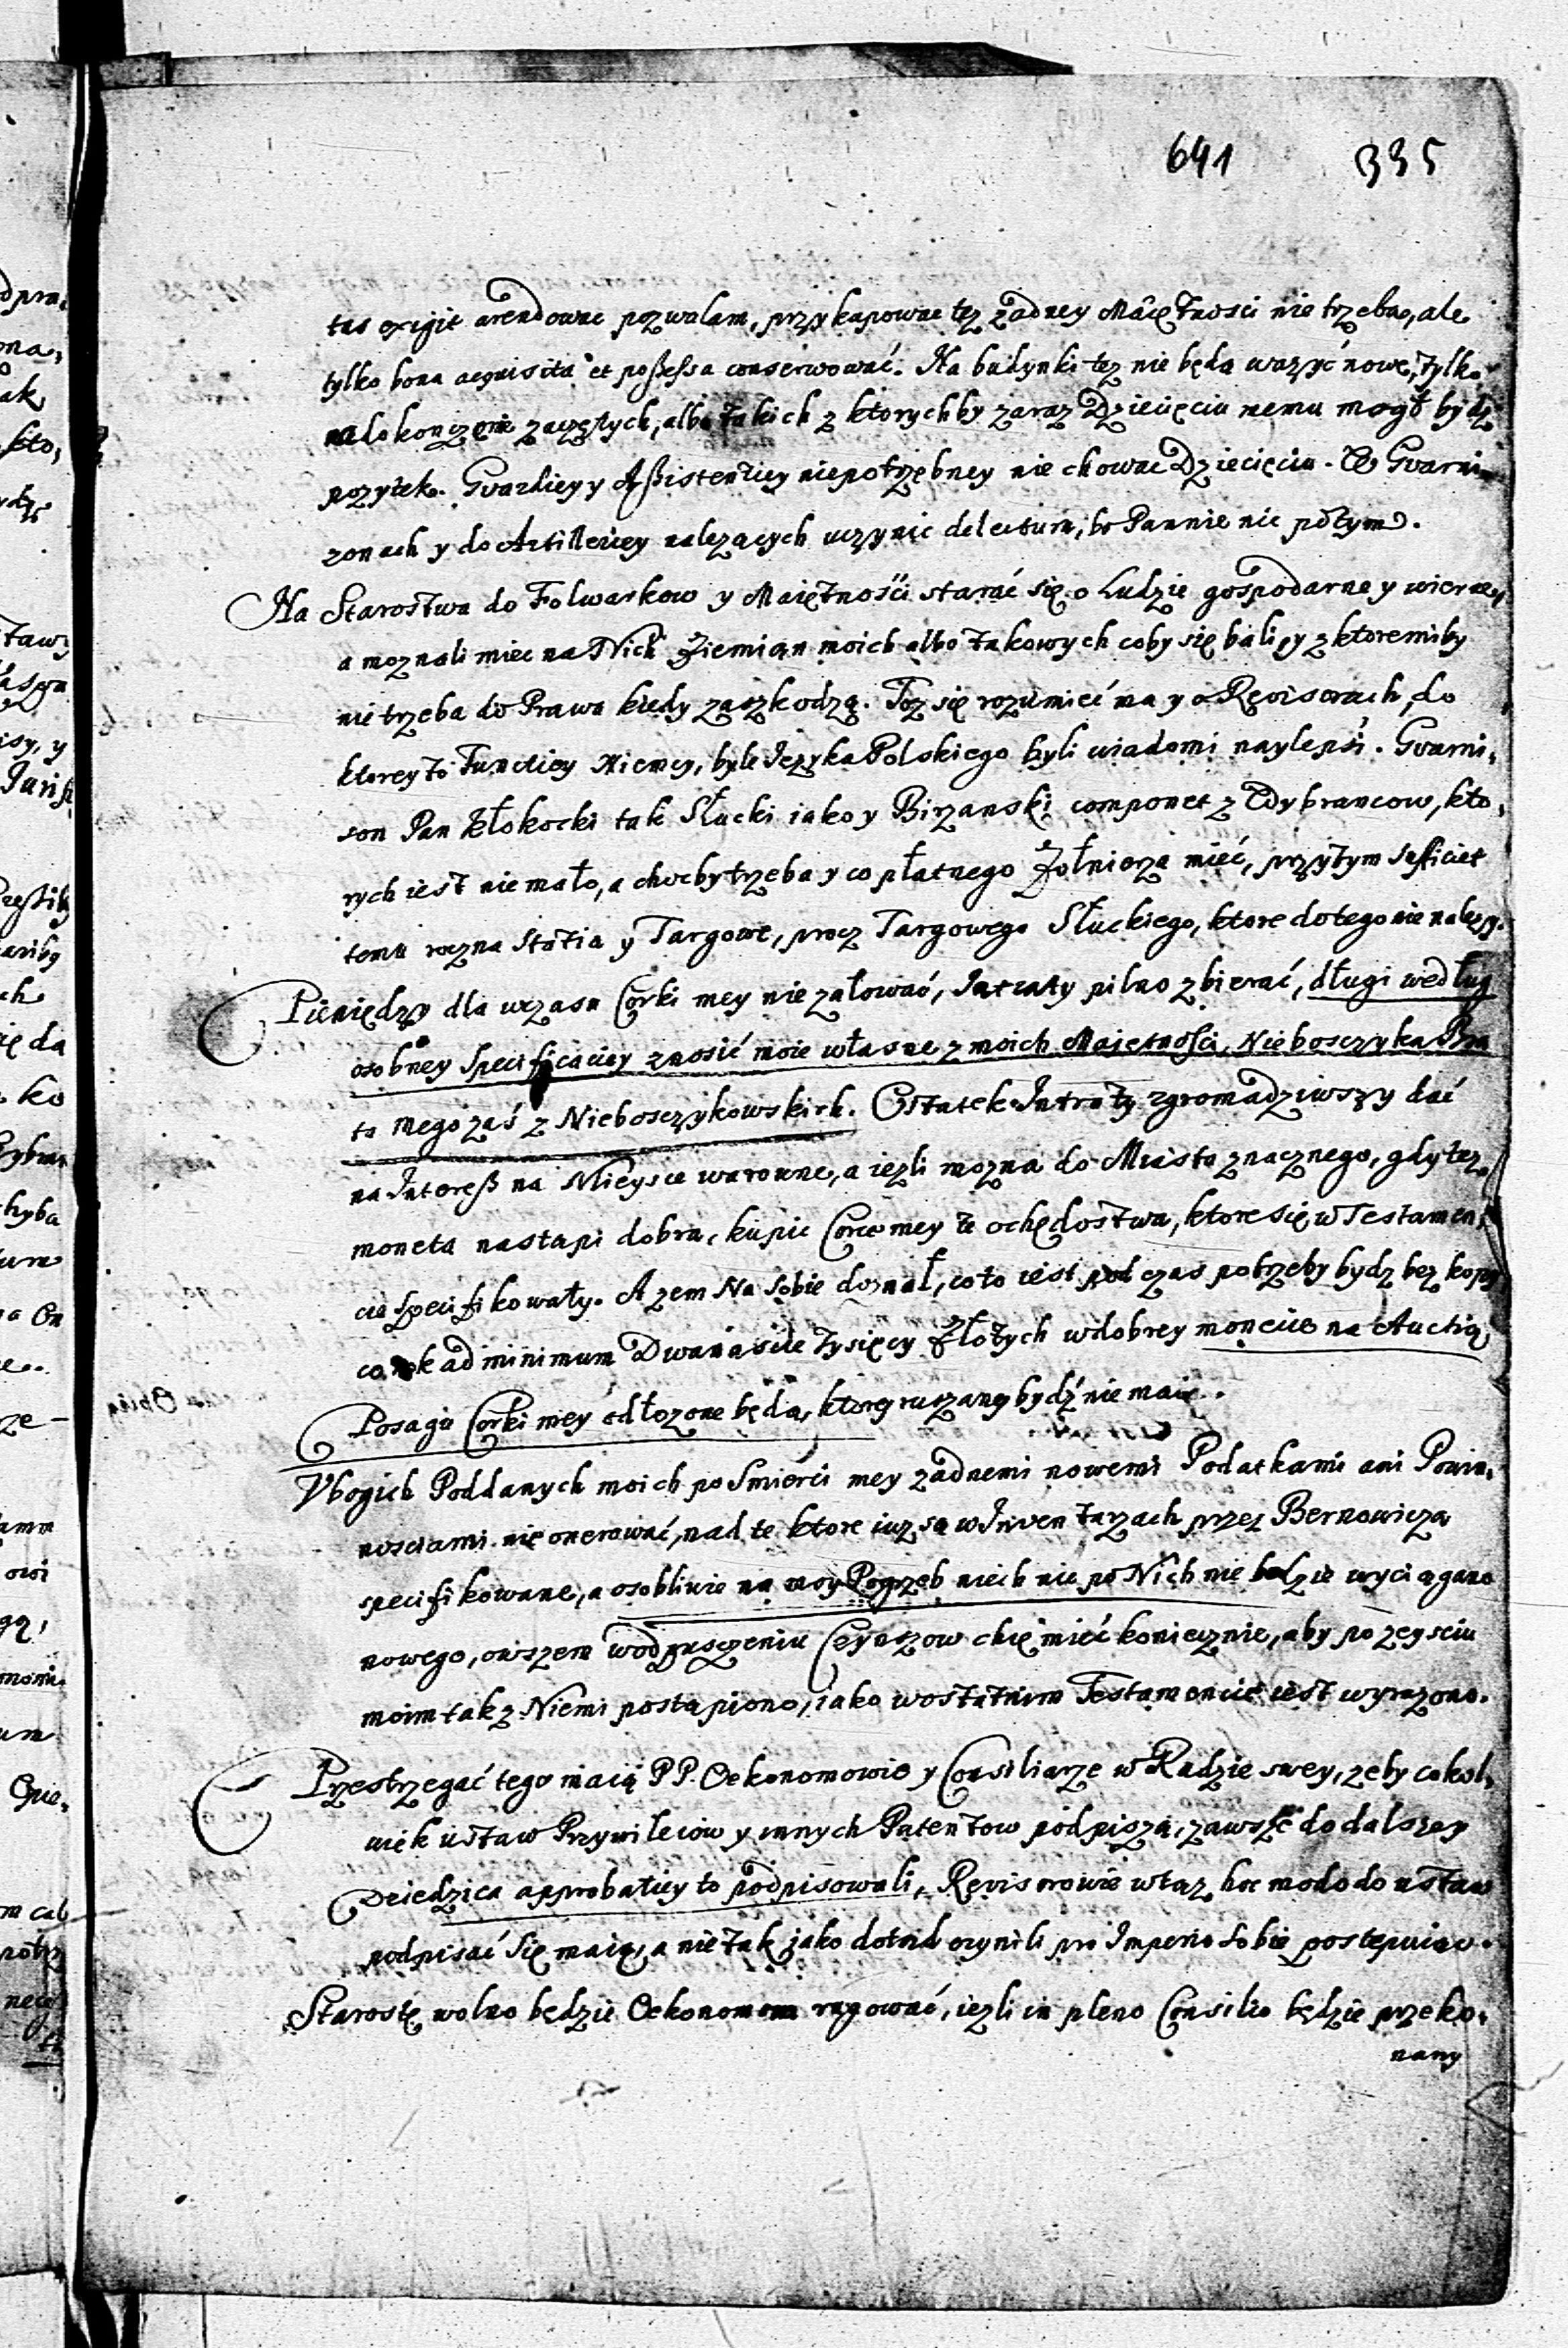 641 335
tas exigit arendowac pozwalam, przykapowac tez zadney Maiętnosci nie trzeba, ale
tylko bona acquisita et possessa conserwować. Na budynki tez nie będą wazyć nowe, tylko
na dokonczenie zaczętych, albo takich z ktorychby zaraz Dziecięciu memu mogł bydz
pozytek. Gvardiey y Assistentiey niepotrzebney nie chowac Dziecięciu. W Gvarni„
zonach y do Artilleriey nalezących uczynic delectum, bo Pannie nic potym.
Na Starostwa do Folwarkow y Maiętnosci starać się o Ludzie gospodarne y wierne,
a moznali miec na Nich Ziemian moich albo takowych coby się bali, y z ktoremiby
nie trzeba do Prawa kiedy zaszkodzą. Toz się rozumieć ma y o Revisorach, do
ktorey to Functiey Niemcy, byle Języka Polskiego byli wiadomi naylepsi. Gvarni„
son Pan Kłokocki tak Słucki iako y Birzanski componet z Wybrancow, kto„
rych iest nie mało, a chocby trzeba y co płatnego Zołnierza mieć, przytym sufficiet
temu roczna Statia y Targowe, procz Targowego Słuckiego, ktore do tego nie nalezy.
Pieniędzy dla wczasu Corki mey nie załować, Intraty pilno zbierać, długi według
osobney specificaciey znosić moie własne z moich Majetnosci, Nieboszczyka Bra
ta mego zaś z Nieboszczykowskich. Ostatek Intraty zgromadziwszy dać
na Interess na Mieysce warowne, a iezli mozna do Miasta znacznego, gdy tez
moneta nastąpi dobra, kupic Corce mey te ochędostwa, ktore się w Testamen„
cie specifikowały. A zem na sobie doznał, co to iest pod czas potrzeby bydz bez kopy
co rok ad minimum Dwanascie tysięcy Złotych w dobrey monecie na Auctią
Posagu Corki mey odłozone będą, ktorey ruszaney bydź nie maią.
Vbogich Poddanych moich po smierci mey zadnemi nowemi Podatkami ani Powin„
nosciami nie onerować, nad te ktore iuz są w Inventarzach przez Bernowicza
specifikowane, a osobliwie na moy Pogrzeb niech nic po Nich nie będzie wyciągano
nowego, owszem w odpuszczeniu Czynszow chcę mieć koniecznie, aby po zeysciu
moim tak z Niemi postąpiono, iako w ostatnim Testamencie iest wyrazono.
Przestrzegać tego maią PP. Oekonomowie y Consiliarze w Radzie swey, zeby cokol„
wiek ustaw Przywileiow y innych Patentow podpiszą, zawsze do dalszey
Dziedzica approbatiey to podpisowali, Revisorowie wtaz hoc modo do ustaw
podpisać się maią, a nie tak jako dotąd czynili pro Imperio sobie postępuiąc.
Starostę wolno będzie Oekonomom rugować, iezli in pleno Consilio będzie przeko„
nany